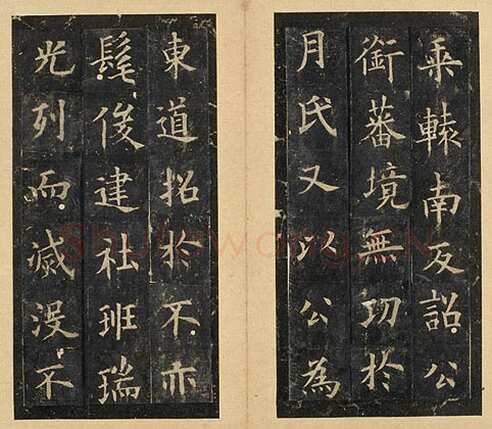 乘轅南反詔公
銜蕃境無功於
月氏又以公為
東道招於不亦
髦俊建社班瑞
光列而滅沒不